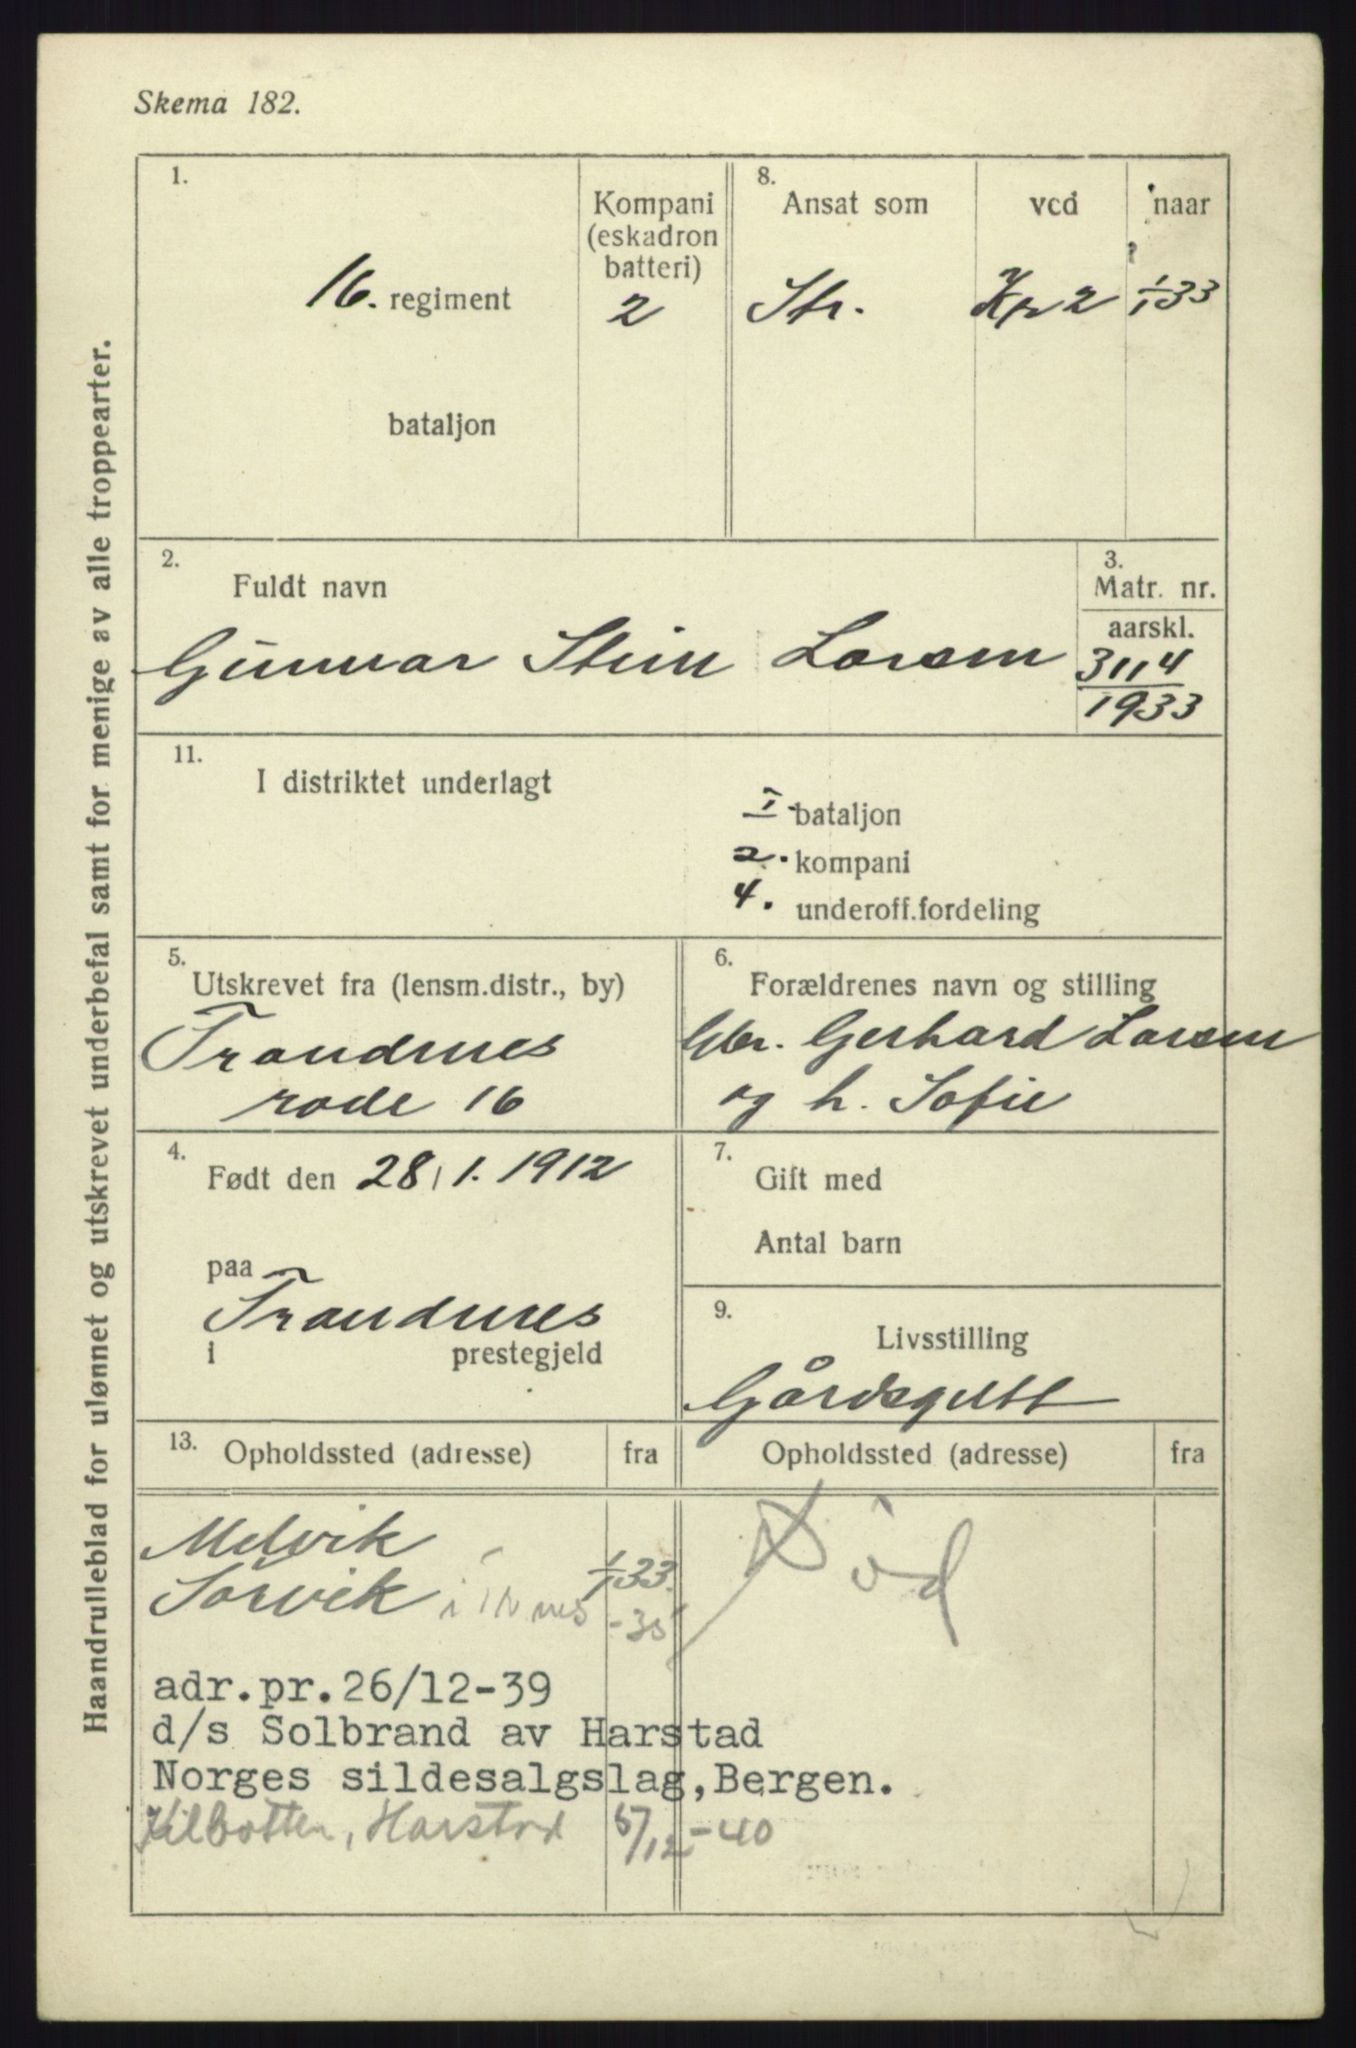 Skema 182.
Haandrulleblad for ulønnet og utskrevet underbefal samt for menige av alle troppearter.
1.
16. regiment
bataljon
Kompani
(eskadron
batteri)
2
8.
Ansat som
Str.
ved
Kp 2
naar
1/1 33
2.
Fuldt navn
Gunnar Stein Larsen
3.
Matr. nr.
aarskl.
3114
1933
11.
I distriktet underlagt
I bataljon
2. kompani
4. underoff.fordeling
5.
Utskrevet fra (lensm.distr., by)
Trondenes
rode 16
6.
Forældrenes navn og stilling
Gbr. Gerhard Larsen
og h. Sofie
4.
Født den 28/1. 1912
paa
Trondenes
i prestegjeld
7.
Gift med
Antal barn
9.
Livsstilling
Gårdsgutt
13.
Opholdssted (adresse) fra
Opholdssted (adresse) fra
Melvik 1/1 33.
Sørvik i -35
Død
adr.pr.26/12-39
d/s Solbrand av Harstad
Norges sildesalgslag,Bergen.
Kilbotten, Harstad 5/12-40